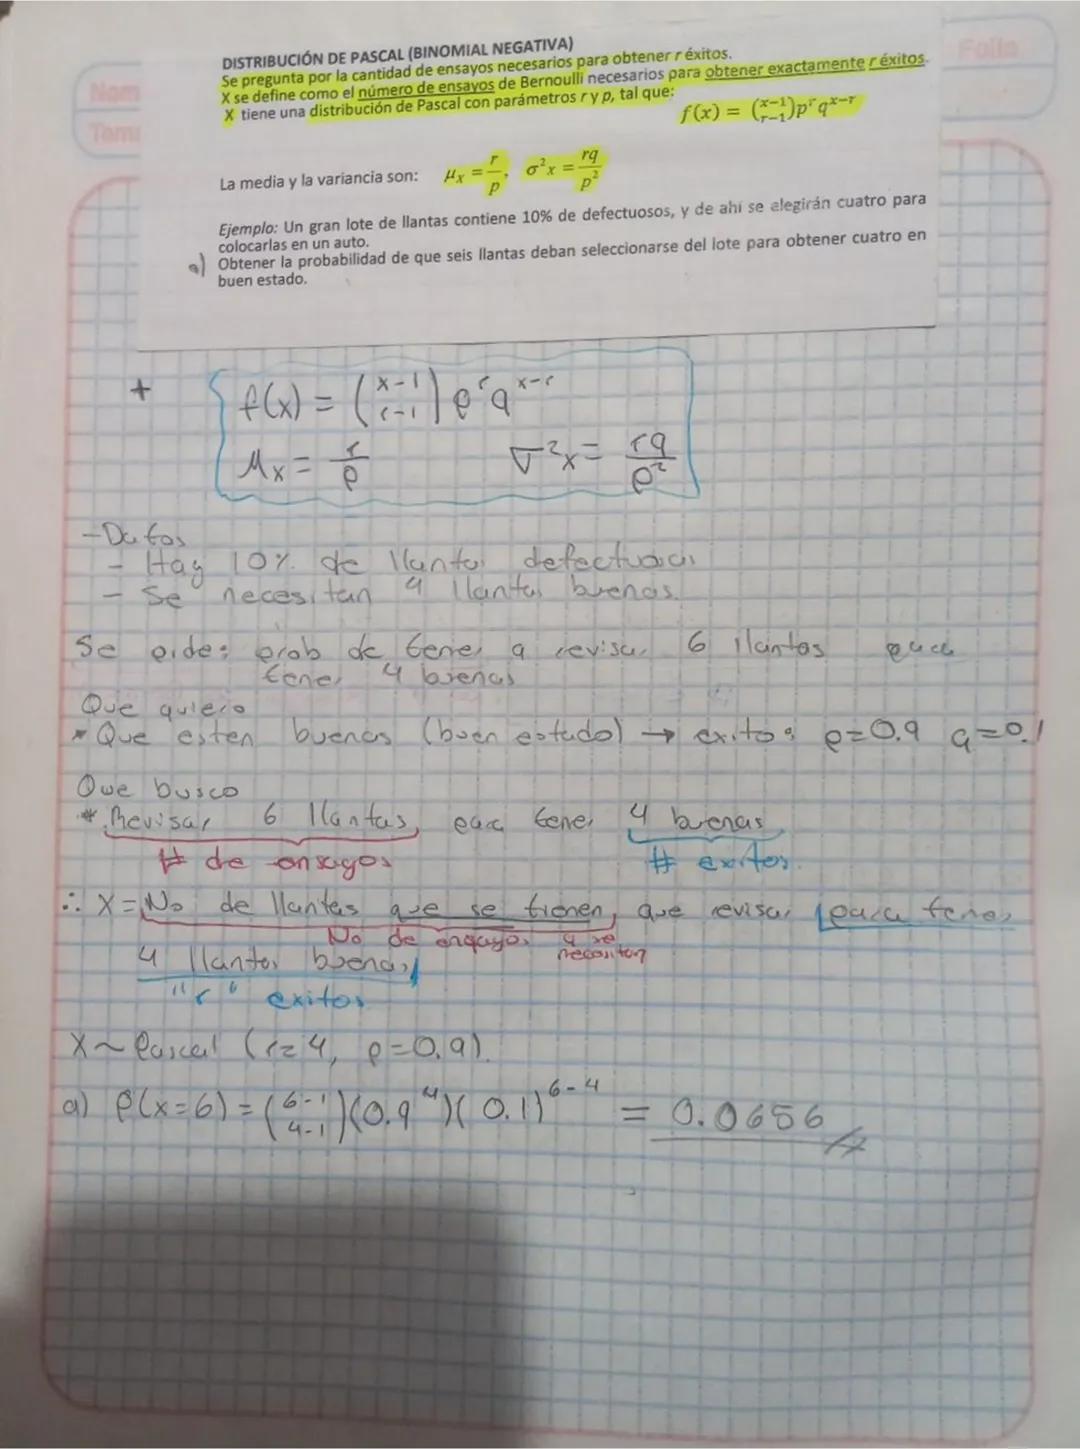 Nom
Tema
Folio
DISTRIBUCIÓN DE PASCAL (BINOMIAL NEGATIVA)
Se pregunta por la cantidad de ensayos necesarios para obtener r éxitos.
X se define como el número de ensayos de Bernoulli necesarios para obtener exactamente r éxitos.
X tiene una distribución de Pascal con parámetros r y p, tal que:
f(x) = (x−1 r−1) p^r q^x−r
La media y la variancia son: μx = r/p, σ²x = rq/p²
Ejemplo: Un gran lote de llantas contiene 10% de defectuosos, y de ahí se elegirán cuatro para
colocarlas en un auto.
a) Obtener la probabilidad de que seis llantas deban seleccionarse del lote para obtener cuatro en
buen estado.
+ f(x) = (x-1 r-1) p^r q^x-r
μx = r/p σ²x = rq/p²
-Datos
- Hay 10% de llantas defectuosas
- Se necesitan 4 llantas buenas.
Se pide: prob de tener q revisar 6 llantas para
tener 4 buenas
Que quiero
* Que esten buenas (buen estado) → exito: p=0.9 q=0.1
Que busco
* Revisar 6 llantas, para tener 4 buenas
# de ensayos # exitos.
∴ X = No de llantas que se tienen, que revisar para tener
No de ensayos q se necesitan
4 llantas buenas
"r" exitos
X ~ Pascal (r=4, p=0.9).
a) P(x=6) = (6-1 4-1)(0.9^4)(0.1)^6-4 = 0.0656